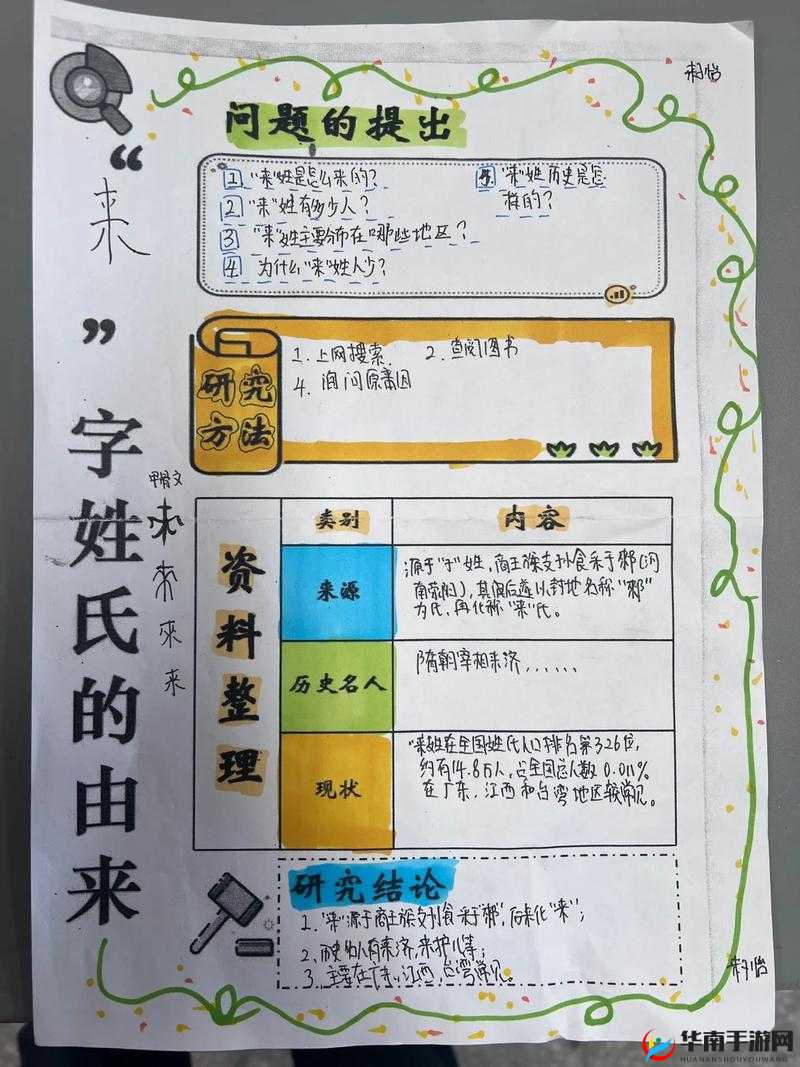 来子怡
“来”字姓氏的由来
甲骨文
来
来
問题的提出
1 “来”姓是怎么来的？
2 “来”姓有多少人？
3 “来”姓主要分布在哪些地区？
4 为什么“来”姓人少？
5 “来”姓历史是怎
样的？
研究
方法
1. 上网搜索
2. 查阅图书
4. 询问
资料整理
类别
内容
来源
源于“子”姓，商王族支孙食采于郲(河
南荥阳)，其后遂以封地名称“郲”
为氏，再化称“来”氏。
历史名人
隋朝宰相来济......
现状
“来姓在全国姓氏人口排名第326位，
约有14.8万人，占全国总人数0.011%
在广东、江西和台湾地区较常见。
研究结论
1. “来”源于商王族支孙食采于“郲”，后来化“来”；
2. 历史名人有来济，来护儿等；
3. 主要在广东、江西、台湾常见。
来子怡
华南手游网
HUANANSHOUYOUWANG